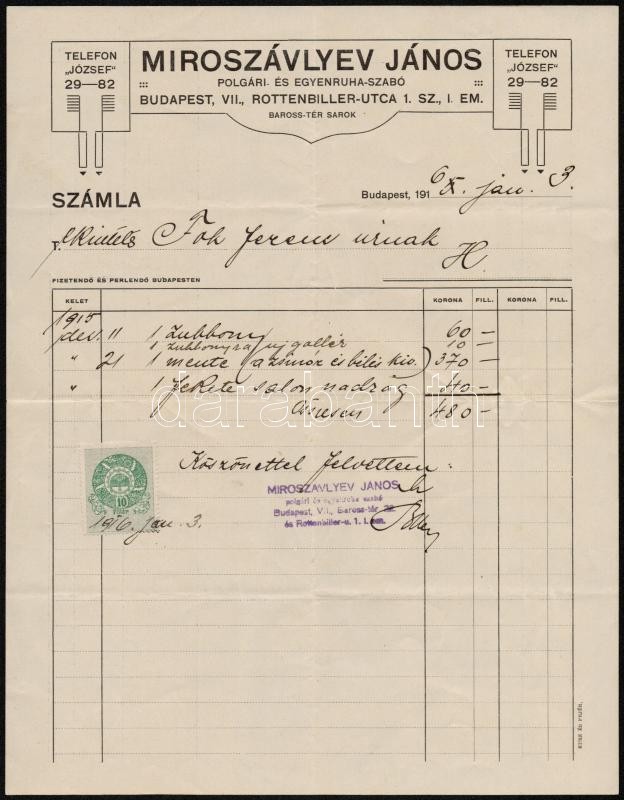 TELEFON
„JÓZSEF”
29—82
MIROSZÁVLYEV JÁNOS
POLGÁRI- ÉS EGYENRUHA-SZABÓ
BUDAPEST, VII., ROTTENBILLER-UTCA 1. SZ., I. EM.
BAROSS-TÉR SAROK
TELEFON
„JÓZSEF”
29—82
SZÁMLA
Budapest, 1916 jan. 3.
T. ekintetes Foh Ferenc úrnak
H.
FIZETENDŐ ÉS PERLENDŐ BUDAPESTEN
KELET KORONA FILL. KORONA FILL.
1915
dec. 11 1 zubbony 60 —
1 zubbonyra uj gallér 10 —
" 21 1 mente (a zsinór és bélés kiv.) 370 —
" 1 fekete salon nadrág 40 —
Összesen 480 —
Köszönettel felvettem:
MIROSZAVLYEV JANOS
polgári és egyenruha szabó
Budapest, VII., Baross-tér 22.
és Rottenbiller-u. 1. I. em.
10
1916. jan. 3.
darabanth